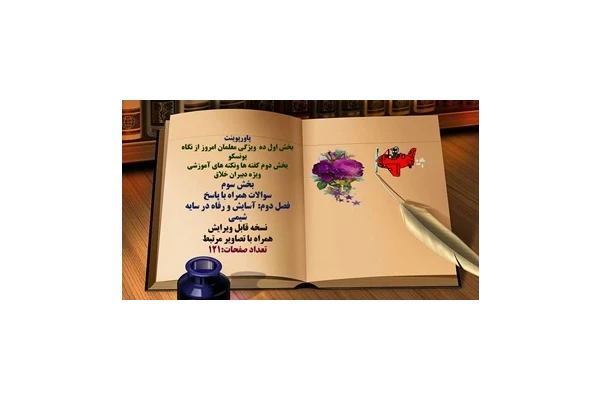 پاورپوینت
بخش اول ده ویژگی معلمان امروز از نگاه
یونسکو
بخش دوم گفته ها ونکته های آموزشی
ویژه دبیران خلاق
بخش سوم
سوالات همراه با پاسخ
فصل دوم: آسایش و رفاه در سایه
شیمی
نسخه قابل ویرایش
همراه با تصاویر مرتبط
تعداد صفحات:۱۲۱